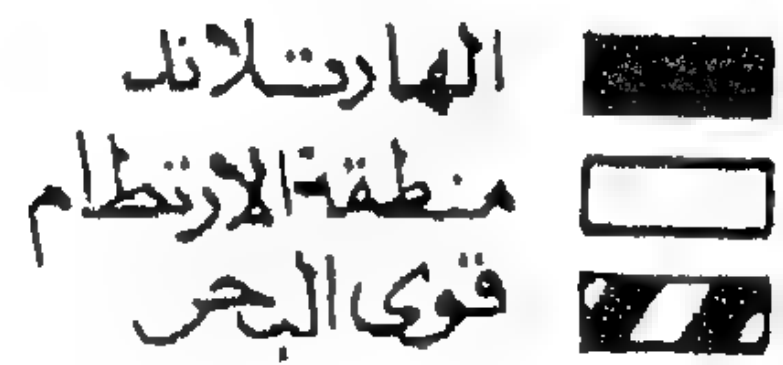 الهارتلاند
منطقة الارتطام
قوى البحر